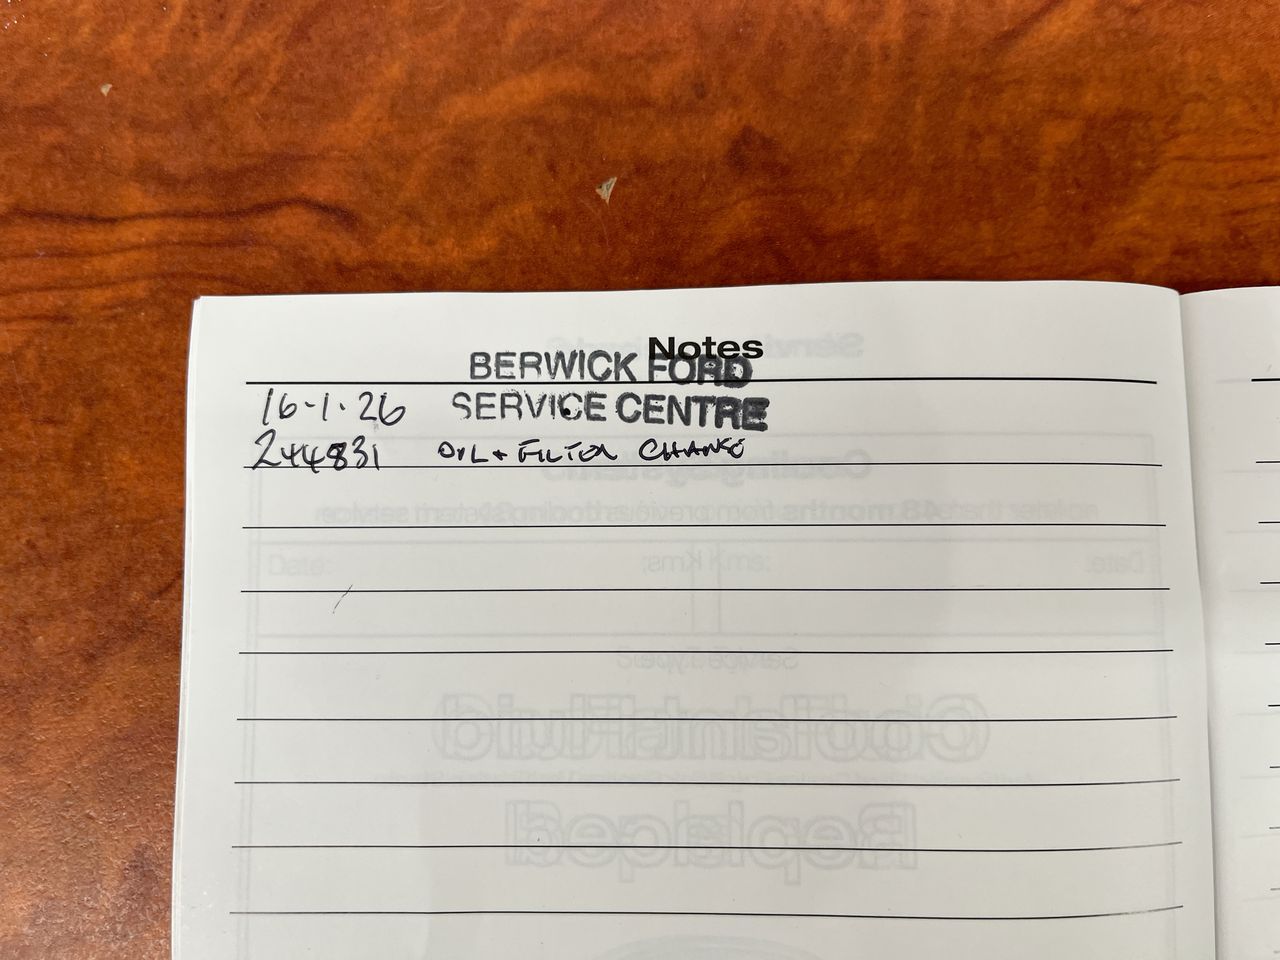 Notes
BERWICK FORD
16-1-26 SERVICE CENTRE
244831 OIL + FILTER CHANGE